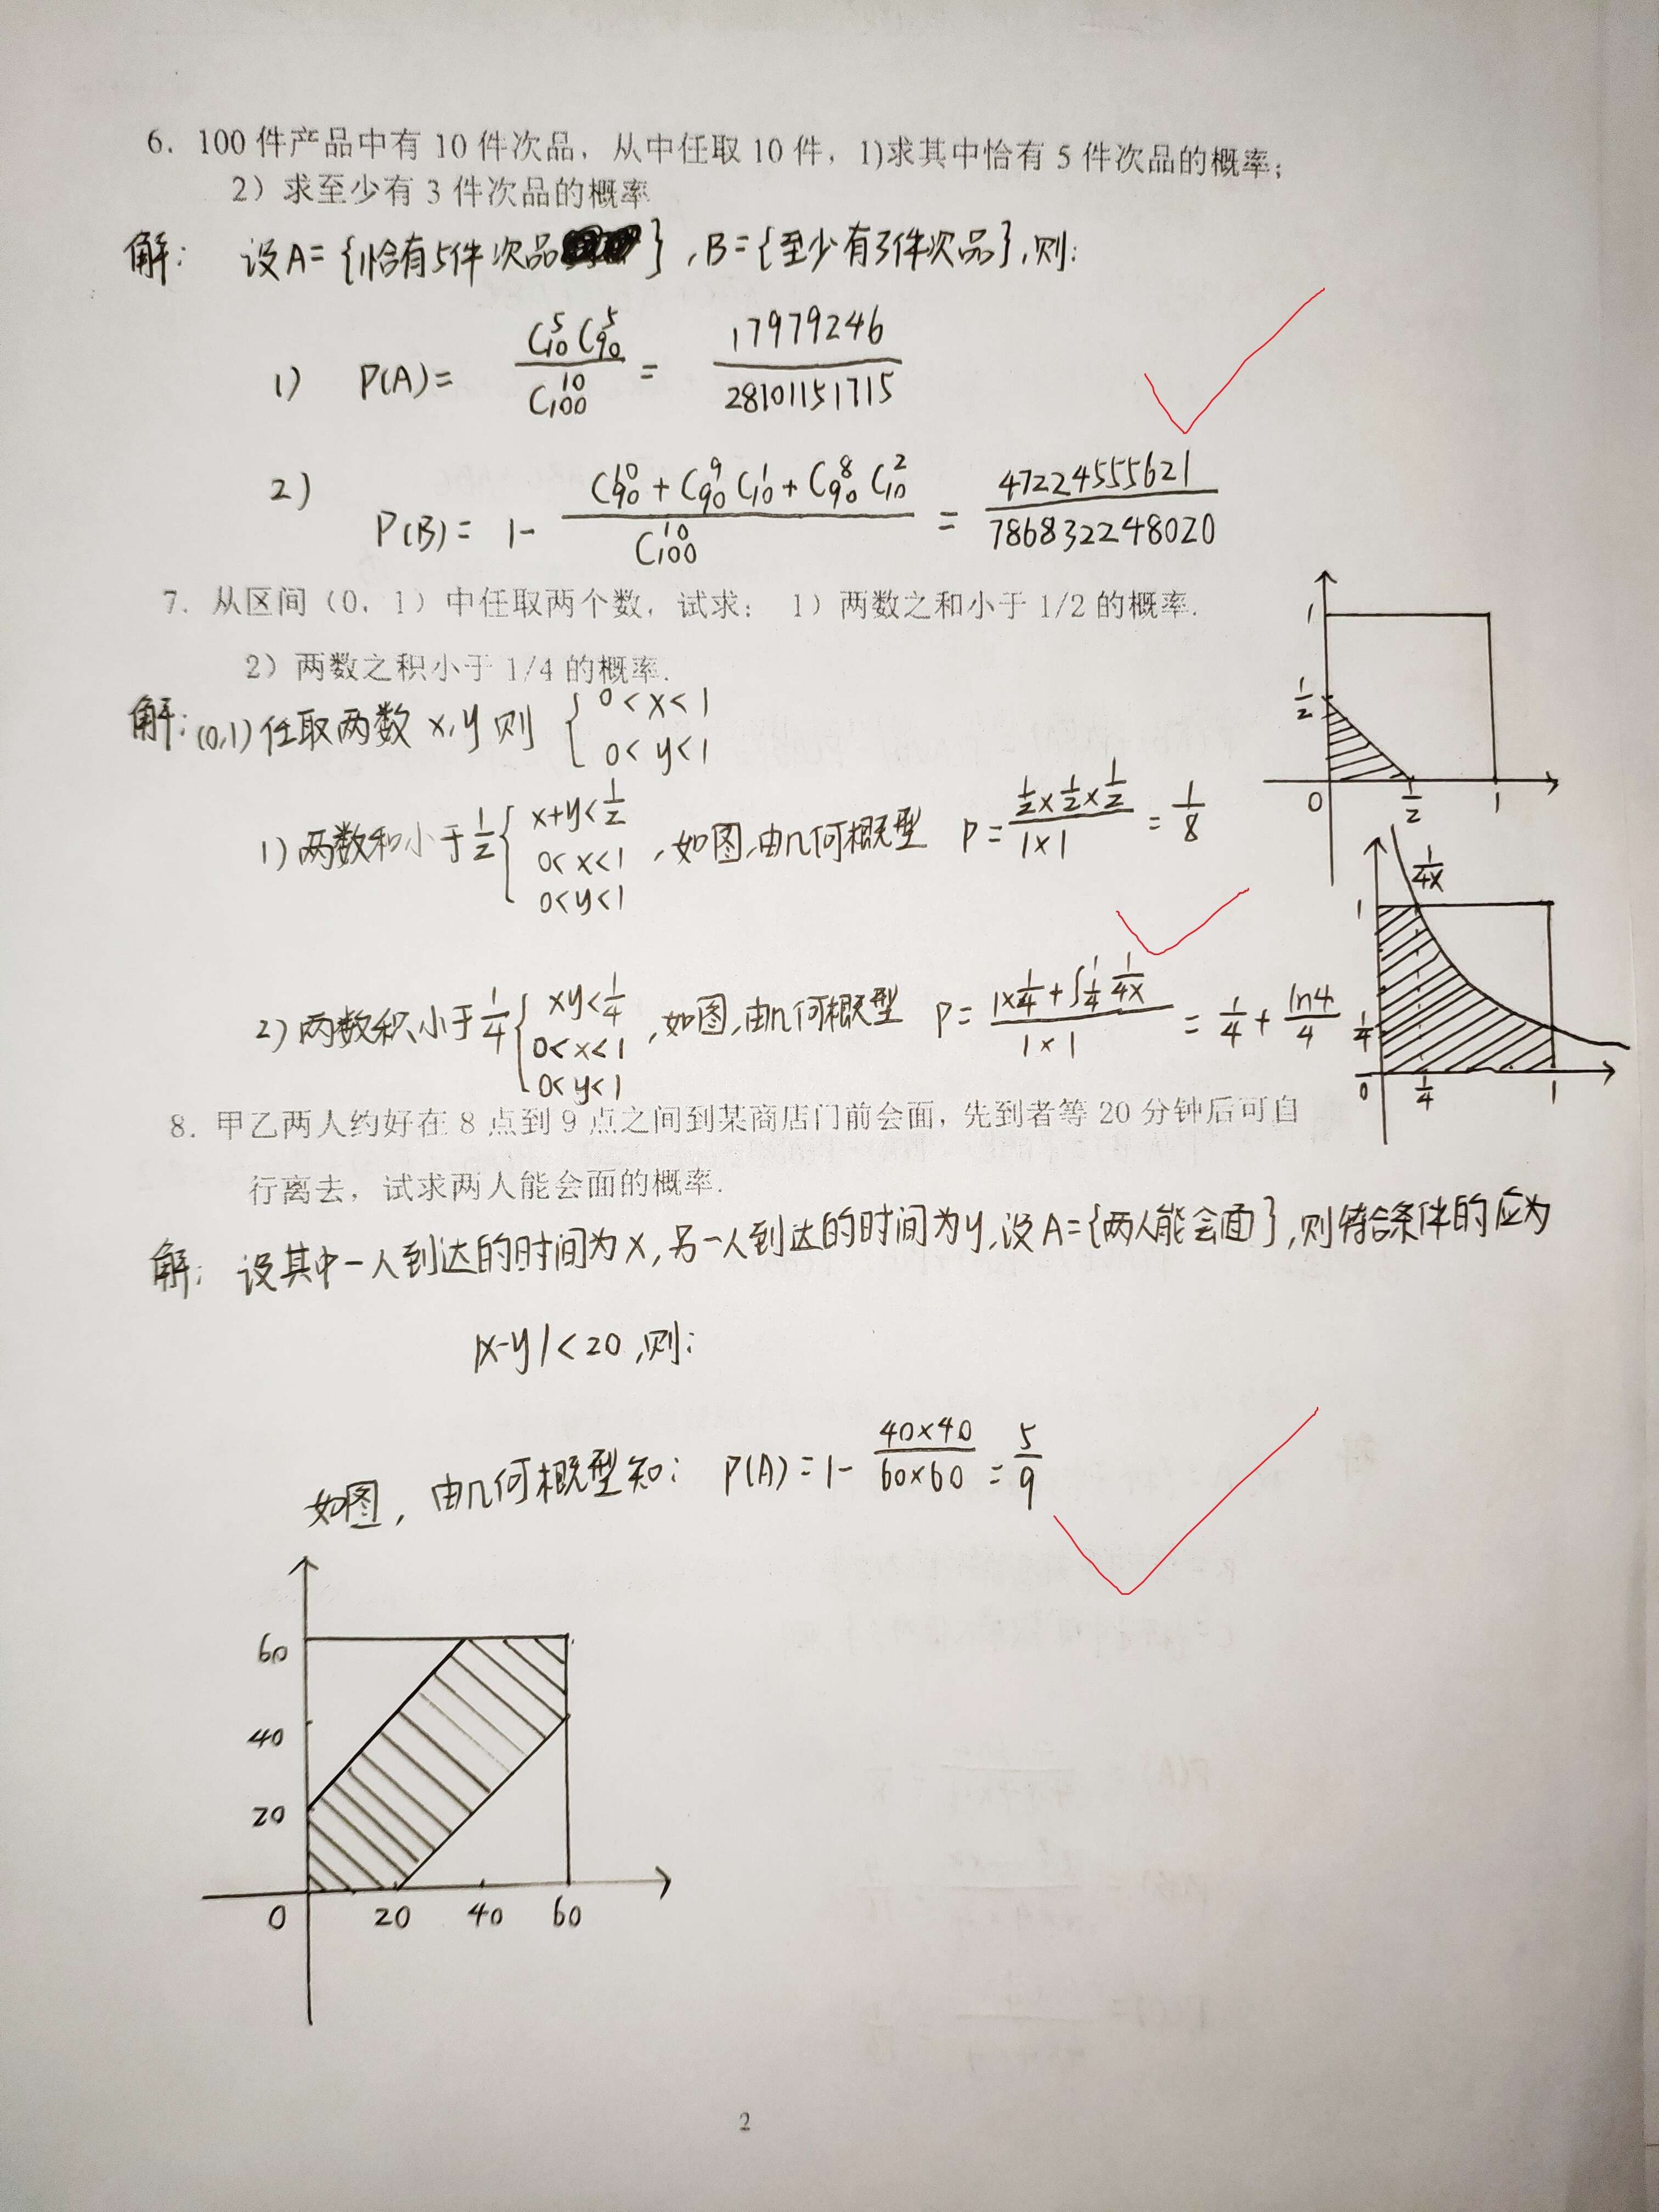 6. 100 件产品中有 10 件次品，从中任取 10 件，1)求其中恰有 5 件次品的概率；
2）求至少有 3 件次品的概率
解： 设A={恰有5件次品}，B={至少有3件次品}，则：
1) P(A)= \frac{C_{10}^{5}C_{90}^{5}}{C_{100}^{10}} = \frac{17979246}{28101151715}
2) P(B)= 1- \frac{C_{90}^{10}+C_{90}^{9}C_{10}^{1}+C_{90}^{8}C_{10}^{2}}{C_{100}^{10}} = \frac{47224555621}{786832248020}
7. 从区间（0，1）中任取两个数，试求： 1）两数之和小于 1/2 的概率.
2）两数之积小于 1/4 的概率.
解：(0,1)任取两数 x,y 则 { 0<x<1
0<y<1
1) 两数和小于\frac{1}{2} { x+y<\frac{1}{2}
0<x<1
0<y<1
，如图,由几何概型 P=\frac{\frac{1}{2}×\frac{1}{2}×\frac{1}{2}}{1×1}=\frac{1}{8}
1
\frac{1}{2}
0 \frac{1}{2} 1
2) 两数积小于\frac{1}{4} { xy<\frac{1}{4}
0<x<1
0<y<1
，如图,由几何概型 P=\frac{1×\frac{1}{4}+∫_{\frac{1}{4}}^{1}\frac{1}{4x}}{1×1}=\frac{1}{4}+\frac{ln4}{4}
\frac{1}{4x}
1
\frac{1}{4}
0 \frac{1}{4} 1
8. 甲乙两人约好在 8 点到 9 点之间到某商店门前会面，先到者等 20 分钟后可自
行离去，试求两人能会面的概率.
解： 设其中一人到达的时间为x,另一人到达的时间为y,设A={两人能会面},则符合条件的应为
|x-y|<20,则：
如图，由几何概型知： P(A)=1-\frac{40×40}{60×60}=\frac{5}{9}
60
40
20
0 20 40 60
2